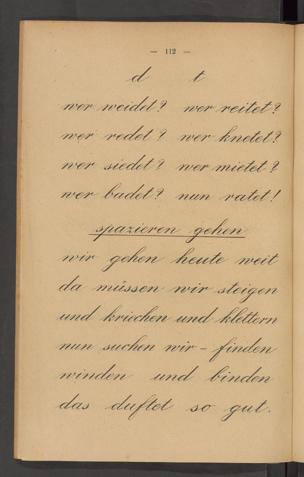 — 112 —
d t
wer weidet? wer reitet?
wer redet? wer knetet?
wer siedet? wer mietet?
wer badet? nun ratet!
spazieren gehen
wir gehen heute weit
da müssen wir steigen
und kriechen und klettern
nun suchen wir – finden
winden und binden
das duftet so gut.